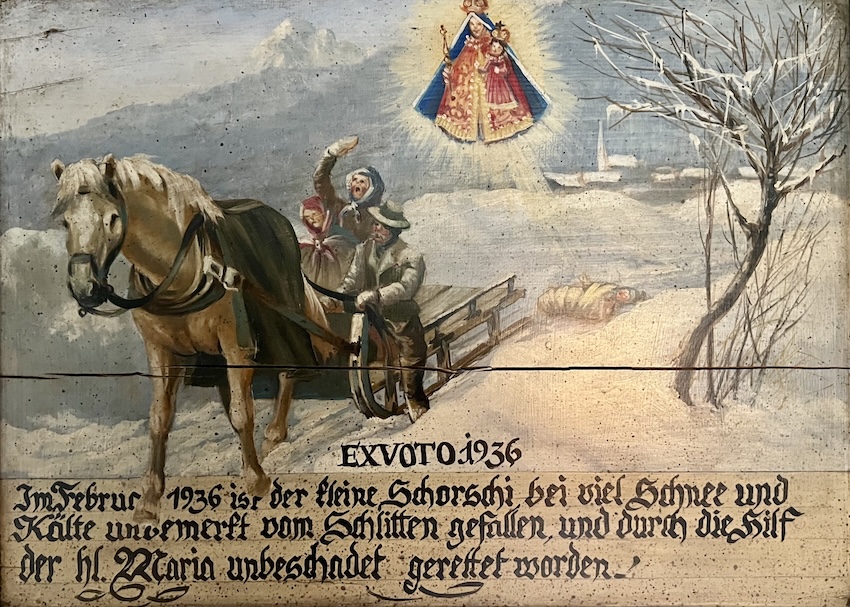 EXVOTO 1936
Im Februa 1936 ist der kleine Schorschi bei viel Schnee und
Kälte unbemerkt vom Schlitten gefallen, und durch die Hilf
der hl. Maria unbeschadet gerettet worden.